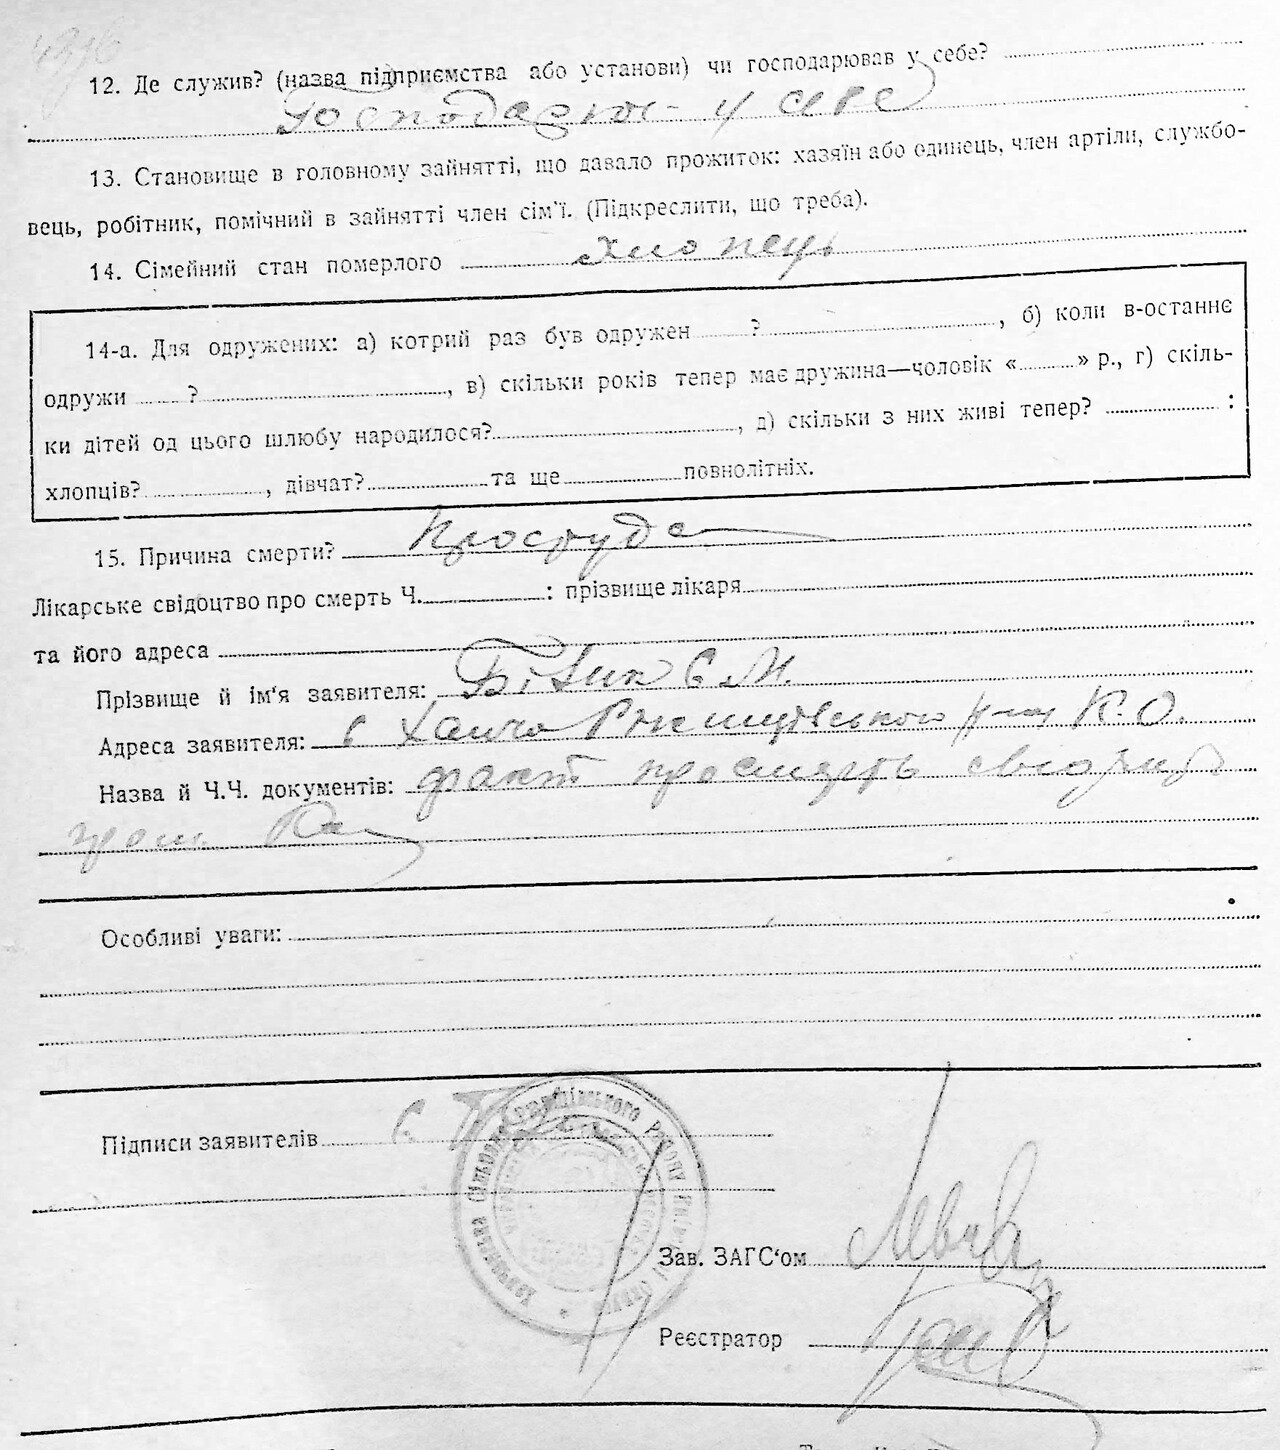 12. Де служив? (назва підприємства або установи) чи господарював у себе?
у себе
13. Становище в головному зайнятті, що давало прожиток: хазяїн або одинець, член артіли, службо-
вець, робітник, помічний в зайнятті член сім'ї. (Підкреслити, що треба).
14. Сімейний стан померлого хлопець
14-а. Для одружених: а) котрий раз був одружен ? , б) коли в-останнє
одружи ? , в) скільки років тепер має дружина—чоловік « » р., г) скіль-
ки дітей од цього шлюбу народилося? , д) скільки з них живі тепер? :
хлопців? , дівчат? та ще повнолітніх.
15. Причина смерти? Простуда
Лікарське свідоцтво про смерть Ч. : прізвище лікаря
та його адреса
Прізвище й ім'я заявителя: Є М.
Адреса заявителя: с К. О.
Назва й Ч.Ч. документів: факт про смерть
Особливі уваги:
Підписи заявителів Є
Району
Зав. ЗАГС‘ом
Реєстратор